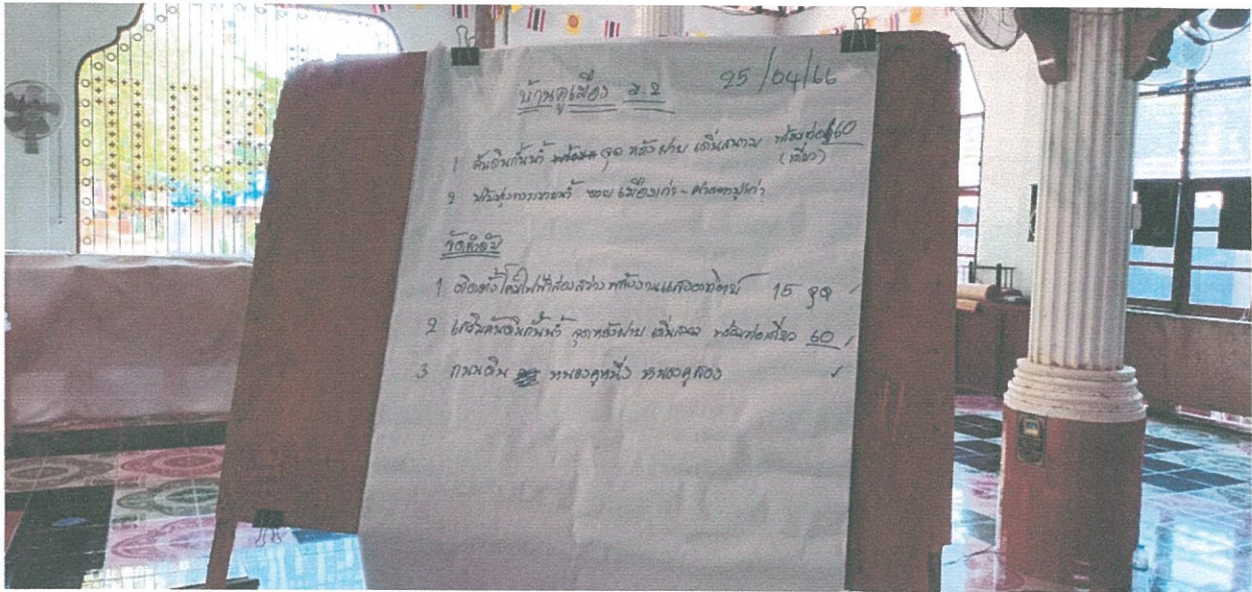 บ้านคูเมือง ม.2 25/04/66
1 คันดินกั้นน้ำ จุด หลังฝาย เดิ่นสนาม พร้อมท่อ 60
(เดี่ยว)
2 ปรับปรุงทางระบายน้ำ ซอย เมืองเก่า - ศาลตาปู่เก่า
จัดลำดับ
1 ติดตั้งโคมไฟฟ้าส่องสว่างพลังงานแสงอาทิตย์ 15 จุด
2 เสริมคันดินกั้นน้ำ จุดหลังฝาย เดิ่นสนาม พร้อมท่อเดี่ยว 60
3 ถนนดิน หนองคูหนึ่ง หนองคูสอง